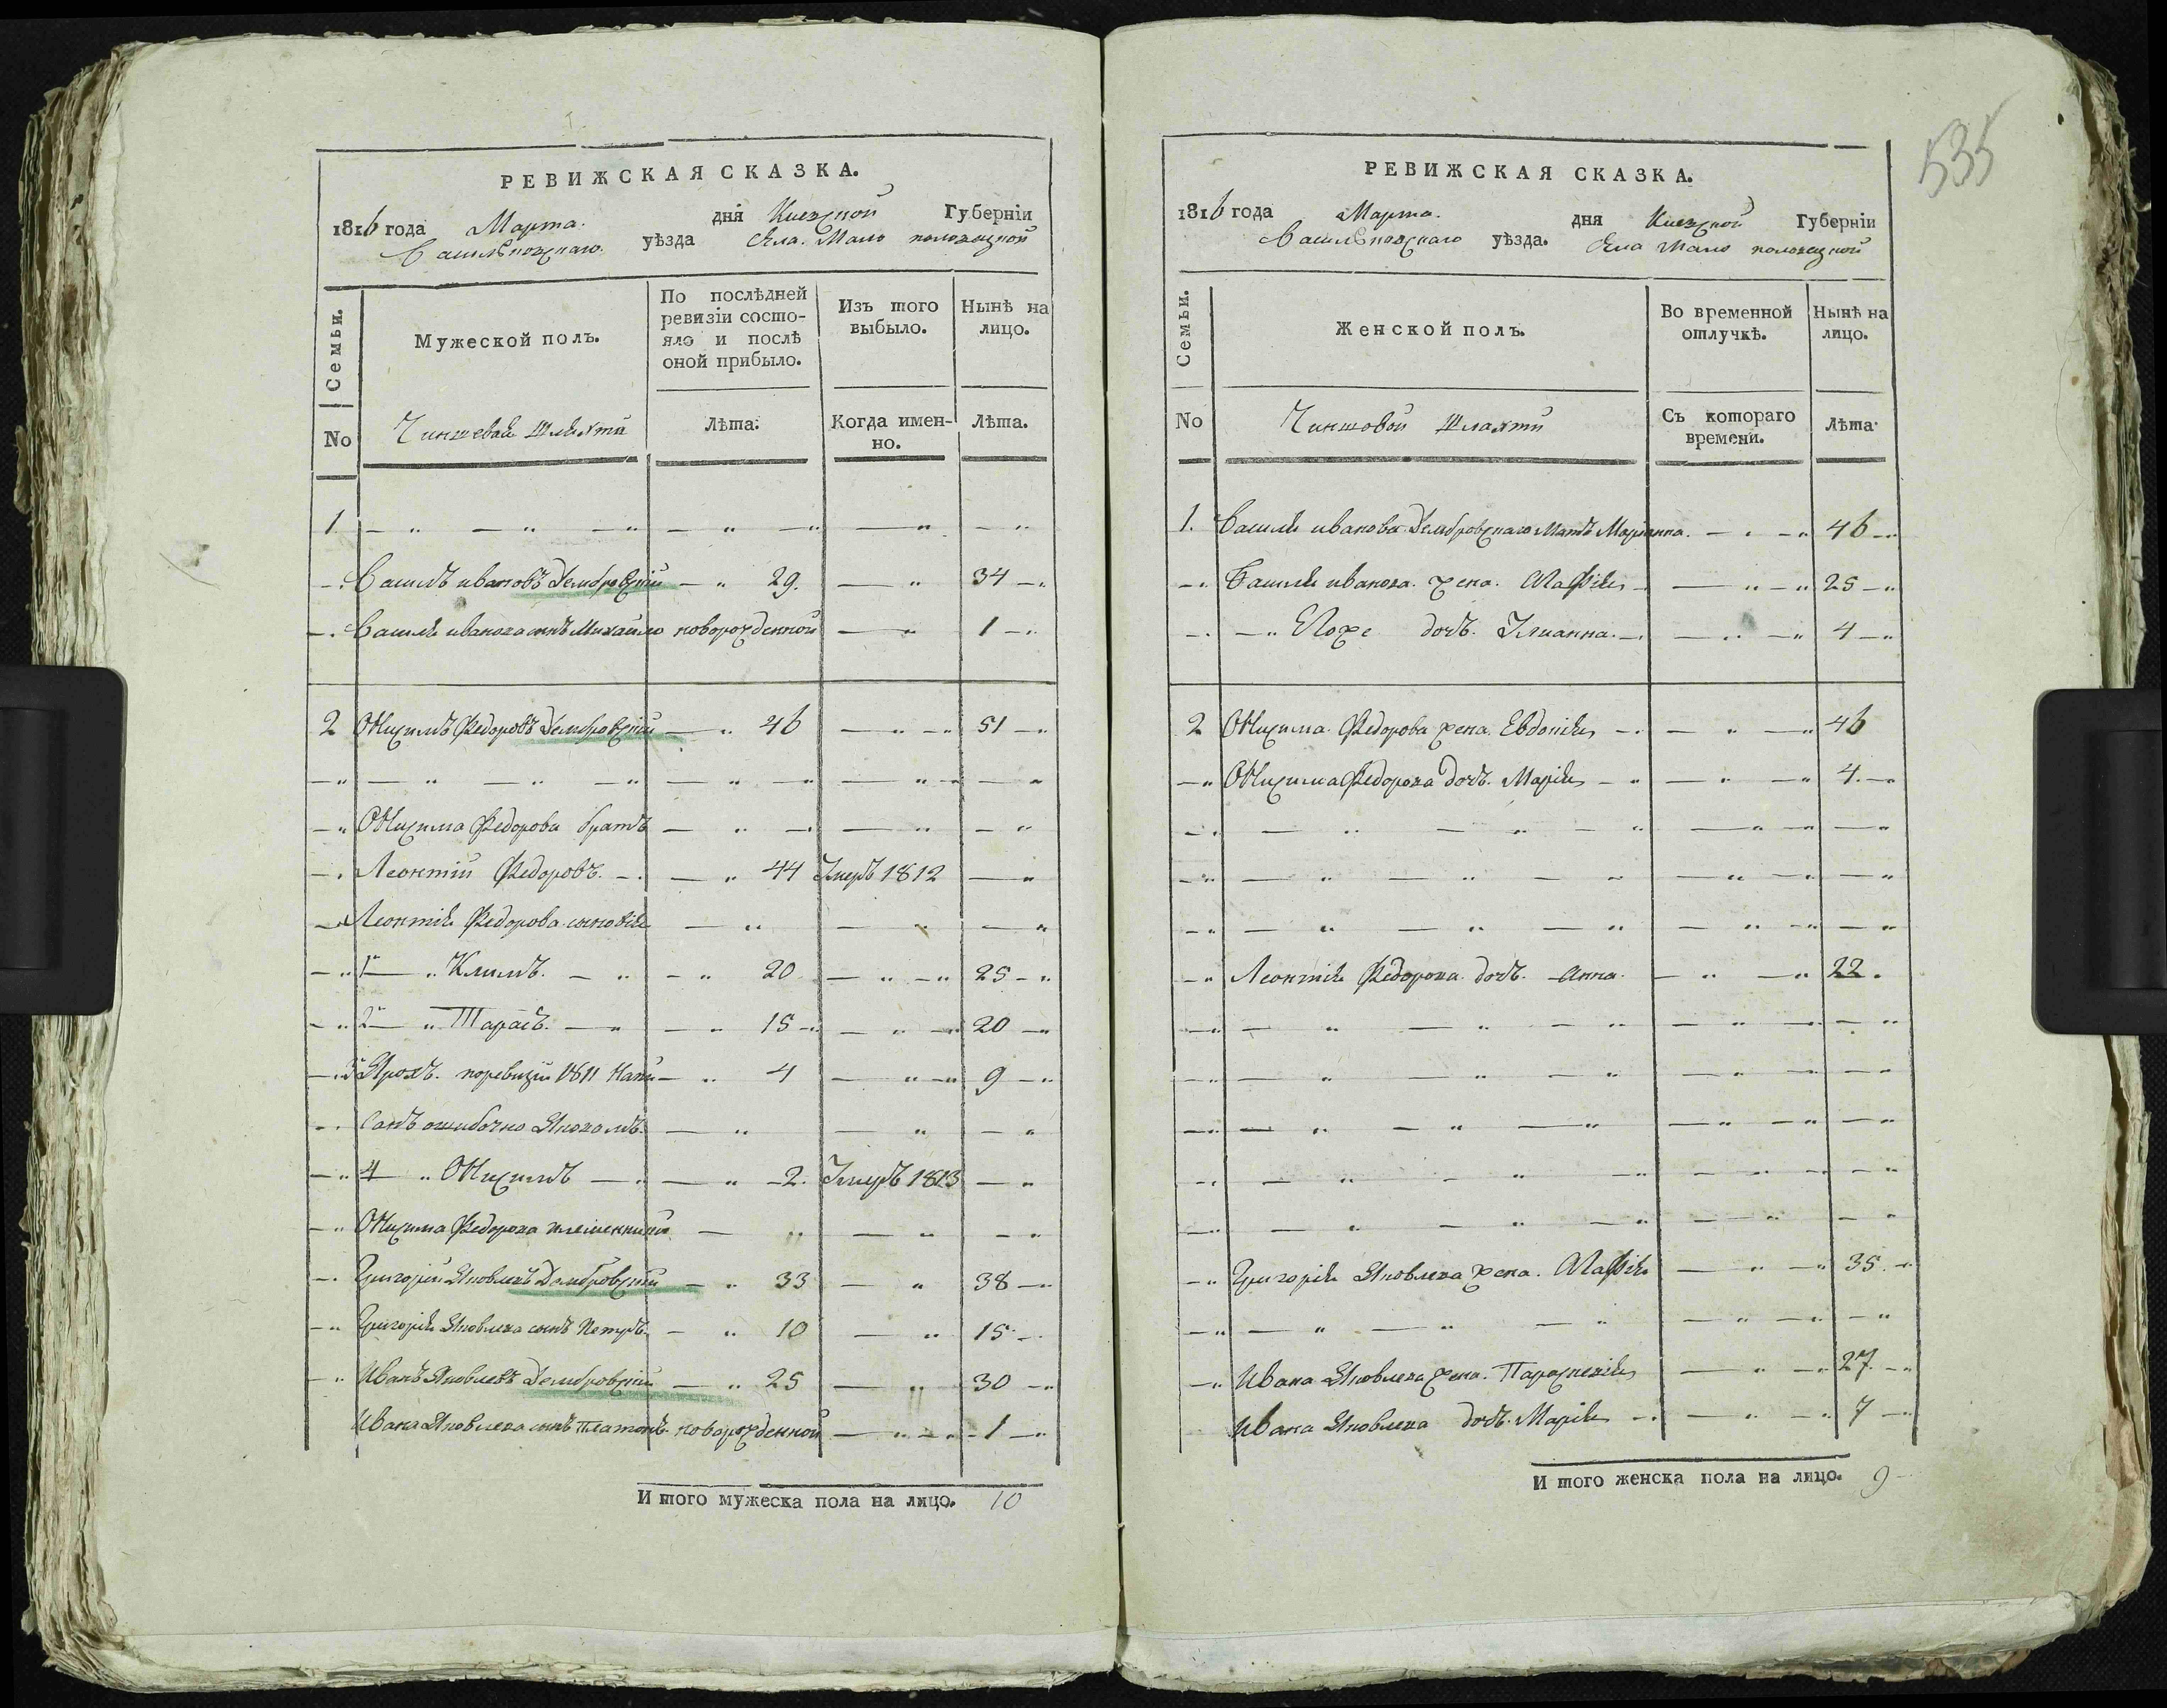 РЕВИЖСКАЯ СКАЗКА.
1816 года Марта. дня Киевской Губерніи
Васильковскаго. уѣзда Села. Мало половецкой
Семьи. Мужеской полъ. По послѣдней ревизіи состояло и послѣ оной прибыло. Изъ того выбыло. Нынѣ на лицо.
No Чиншевай Шляхти Лѣта. Когда именно. Лѣта.
1
Василъ ивановъ Дембровскій 29. 34
Василя иванова сынъ Михайло новорожденной 1
2 Онисимъ Федоровъ Дембровскій 46 51
Онисима Федорова братъ
Леонтій Федоровъ. 44 Умеръ 1812
Леонтія Федорова сыновія
1й Климъ. 20 25
2й Тарасъ. 15 20
3й Ярохъ. поревизіи 1811 Напи 4 9
санъ ошибочно
4 Онисимъ 2. Умеръ 1813
Онисима Федорова племенники
Григорій Яковлевъ Домбровскій 33 38
Григорія Яковлева сынъ Петръ 10 15
Иванъ Яковлевъ Дембровскій 25 30
Ивана Яковлева сынъ Платонъ новорожденной 1
И того мужеска пола на лицо. 10
535
РЕВИЖСКАЯ СКАЗКА.
1816 года Марта. дня Киевской Губерніи
Васильковскаго уѣзда. Села Мало половецкой
Семьи. Женской полъ. Во временной отлучкѣ. Нынѣ на лицо.
No Чиншовой Шляхти Съ котораго времени. Лѣта.
1. Василя иванова Дембровскаго Мать Маріанна. 46
Василя иванова жена. Агафія 25
Егоже дочь. Уліанна. 4
2 Онисима Федорова жена. Евдокія 46
Онисима Федорова дочь. Марія 4
Леонтія Федорова дочь. Анна. 22
Григорія Яковлева жена. Агафія 35
Ивана Яковлева жена. Параскевія 27
Ивана Яковлева дочь. Марія 7
И того женска пола на лицо. 9